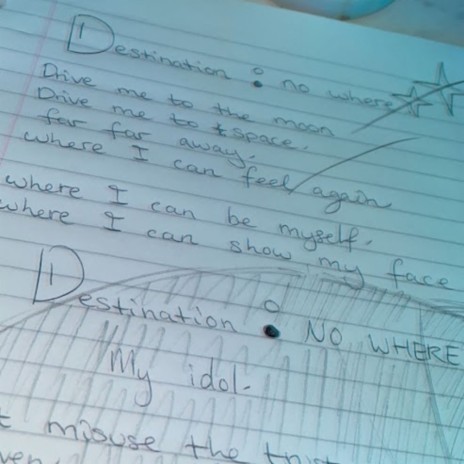 Destination : no where
Drive me to the moon
Drive me to space.
far far away.
where I can feel again
where I can be myself.
where I can show my face
Destination : NO WHERE
My idol.
misuse the